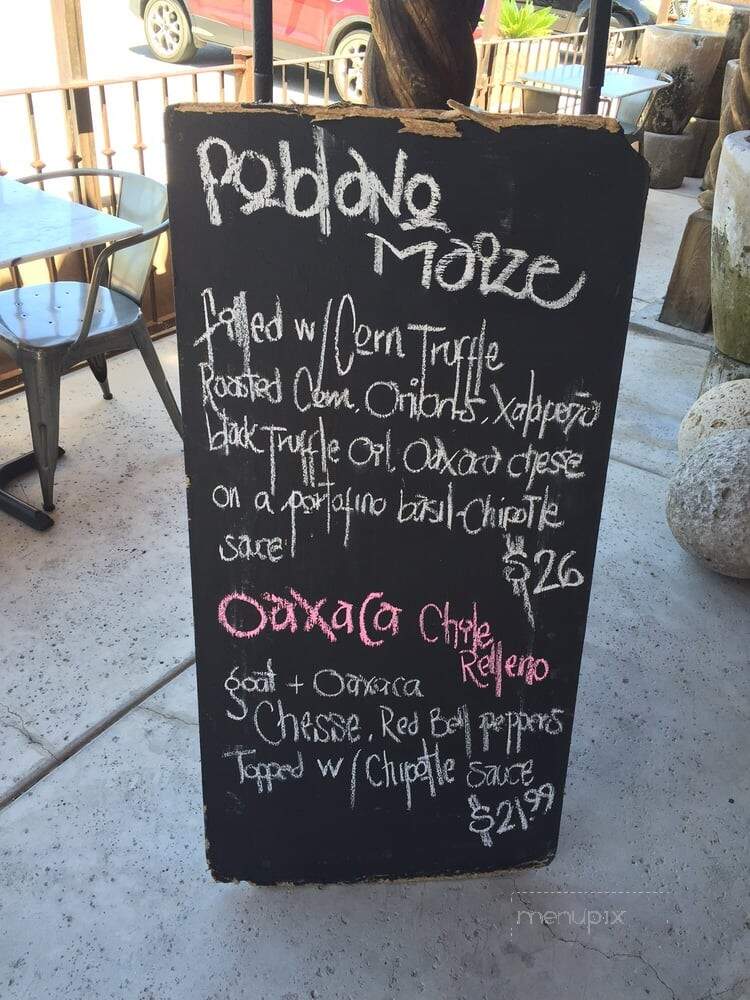 Poblano
Maize
filled w/ Corn Truffle
Roasted Corn, Onions, Xalapeño
black Truffle Oil, Oaxaca chesse
on a portofino basil-Chipotle
sauce
$26
Oaxaca Chile
Relleno
goat + Oaxaca
Chesse, Red Bell peppers
Topped w/ Chipotle sauce
$21.99
menupix